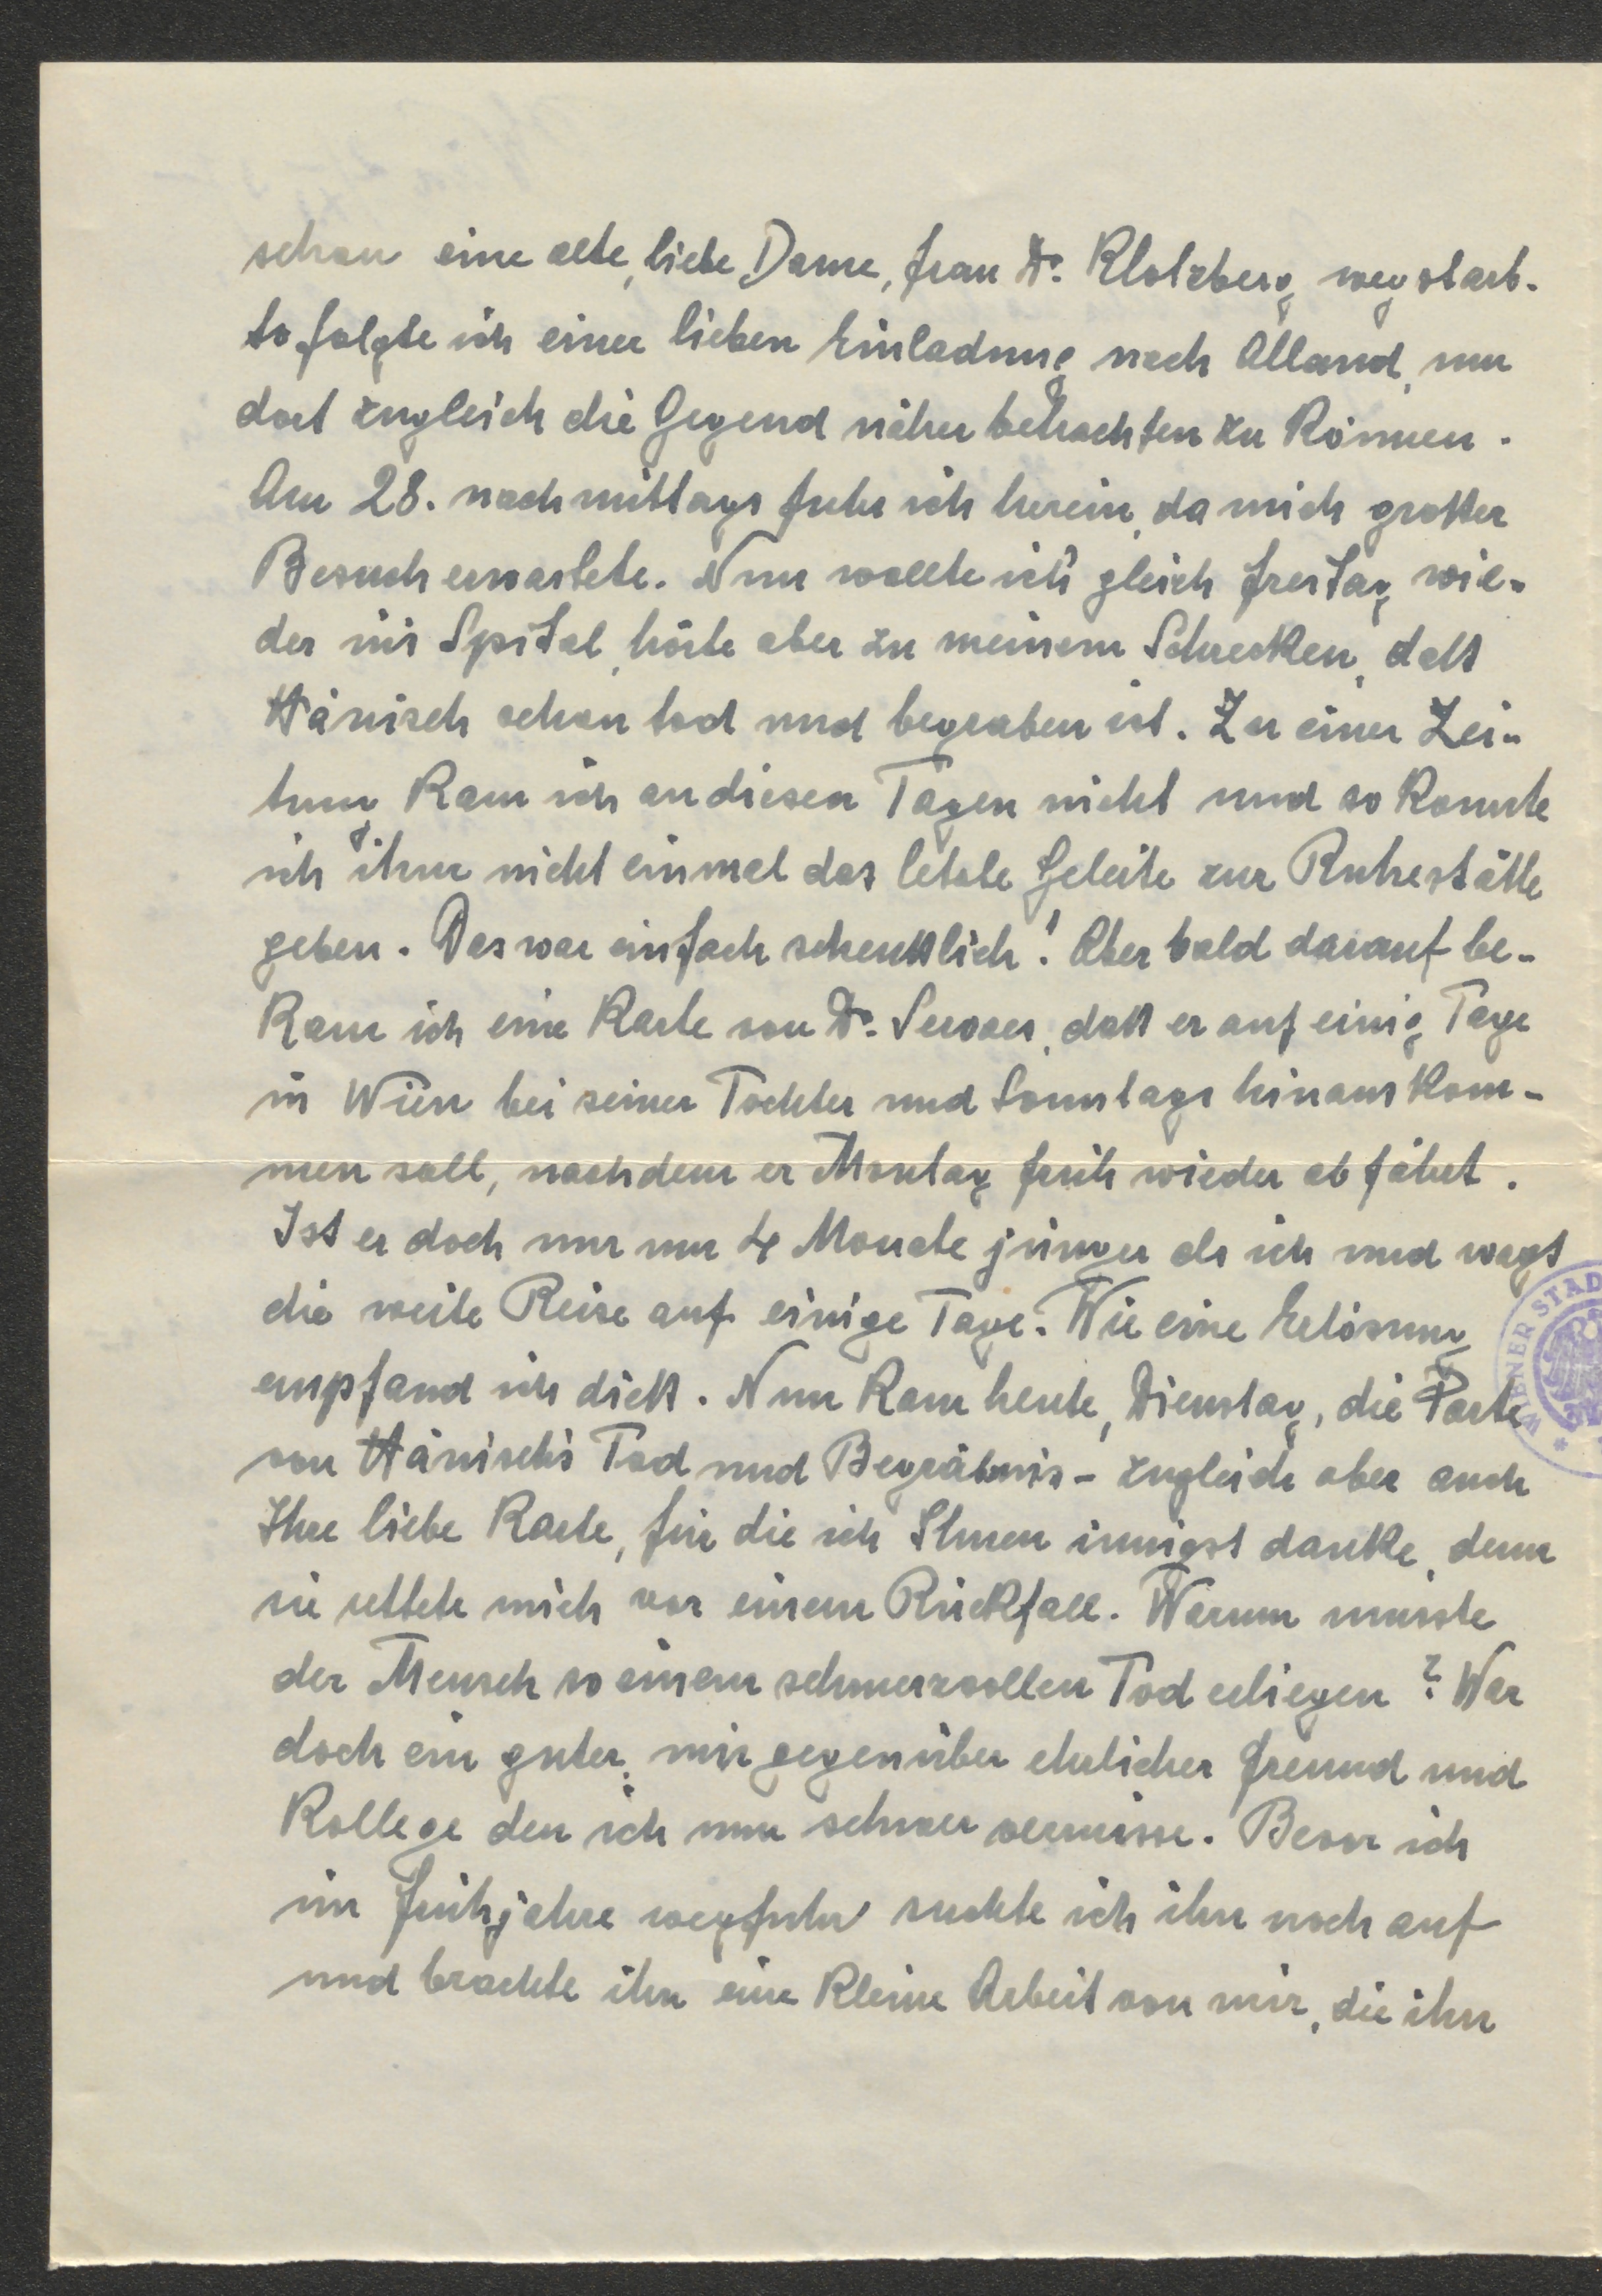 schon eine alte, liebe Dame, Frau Dr. Klotzberg wegstarb.
So folgte ich einer lieben Einladung nach Alland, um
dort zugleich die Gegend näher betrachten zu können.
Am 28. nachmittags fuhr ich herein, da mich großer
Besuch erwartete. Nun wollte ich gleich Freitag wie-
der ins Spital, hörte aber zu meinem Schrecken, daß
Hänisch schon tod und begraben ist. Zu einer Zei-
tung kam ich an diesen Tagen nicht und so konnte
ich ihm nicht einmal das letzte Geleite zur Ruhestätte
geben. Das war einfach scheußlich! Aber bald darauf be-
kam ich eine Karte von Dr. Servaes, daß er auf einig Tage
in Wien bei seiner Tochter und Sonntags hinauskom-
men soll, nachdem er Montag früh wieder abfährt.
Ist er doch nur um 4 Monate jünger als ich und wagt
die weite Reise auf einige Tage. Wie eine Erlösung
empfand ich dieß. Nun kam heute, Dienstag, die Parte
von Hänisch's Tod und Begräbnis - zugleich aber auch
Ihre liebe Karte, für die ich Ihnen innigst danke, denn
sie rettete mich vor einem Rückfall. Warum musste
der Mensch so einem schmerzvollen Tod erliegen? War
doch ein guter, mir gegenüber ehrlicher Freund und
Kollege den ich nun schwer vermisse. Bevor ich
im Frühjahre wegfuhr suchte ich ihn noch auf
und brachte ihm eine kleine Arbeit von mir, die ihn
WIENER STAD